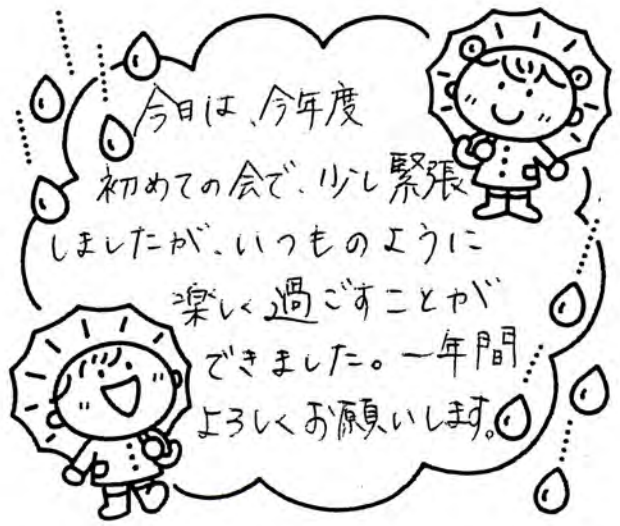 今日は、今年度
初めての会で、少し緊張
しましたが、いつものように
楽しく過ごすことが
できました。一年間
よろしくお願いします。